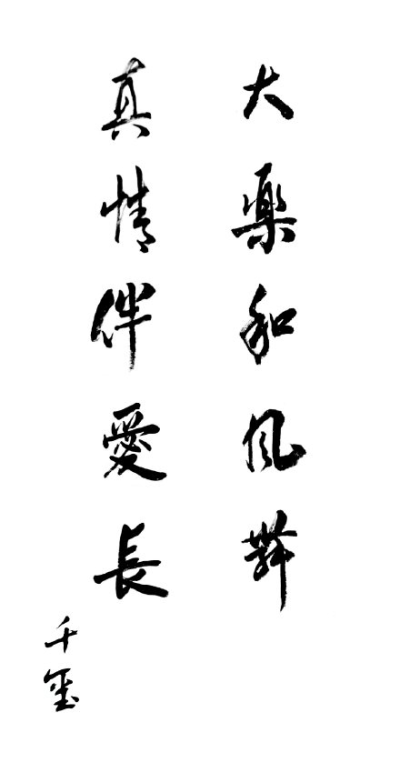 大樂和風舞
真情伴愛長
千玺